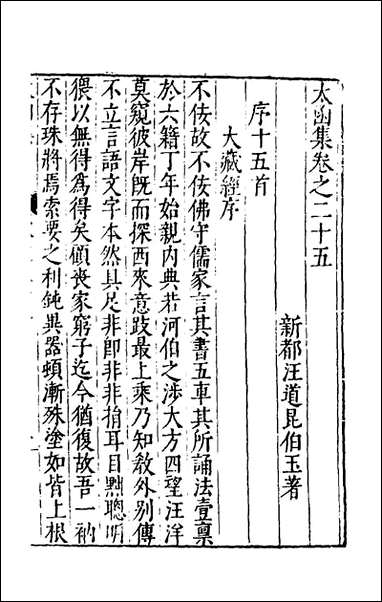 太函集卷之二十五
新都汪道昆伯玉著
序十五首
大藏經序
不佞故不佞佛守儒家言其書五車其所誦法壹稟
於六籍丁年始親內典若河伯之涉大方四望汪洋
莫窺彼岸既而探西來意跂最上乘乃知教外別傳
不立言語文字本然具足非即非非捐耳目黜聰明
猥以無得為得矣顧喪家窮子迄今猶復故吾一衲
不存珠將焉索要之利鈍異器頓漸殊塗如皆上根